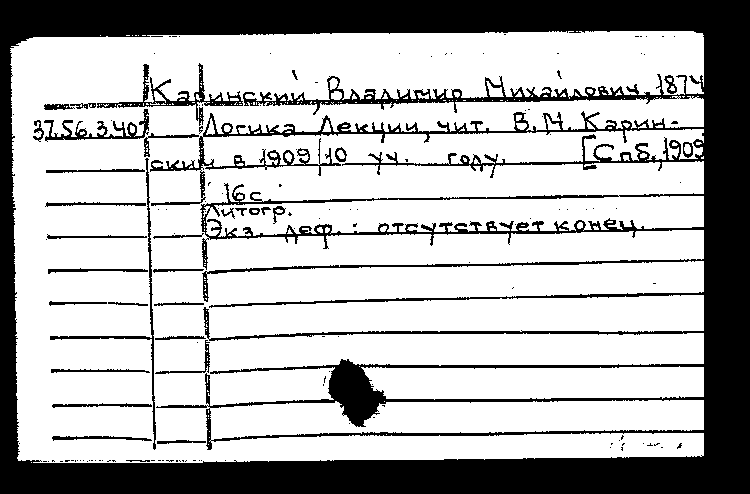 Каринский, Владимир Михайлович, 1874
37.56.3.407. Логика Лекции, чит. В. М. Карин-
ским в 1909/10 уч. году. [Спб., 1909
16 с.
Литогр.
Экз. деф.: отсутствует конец.